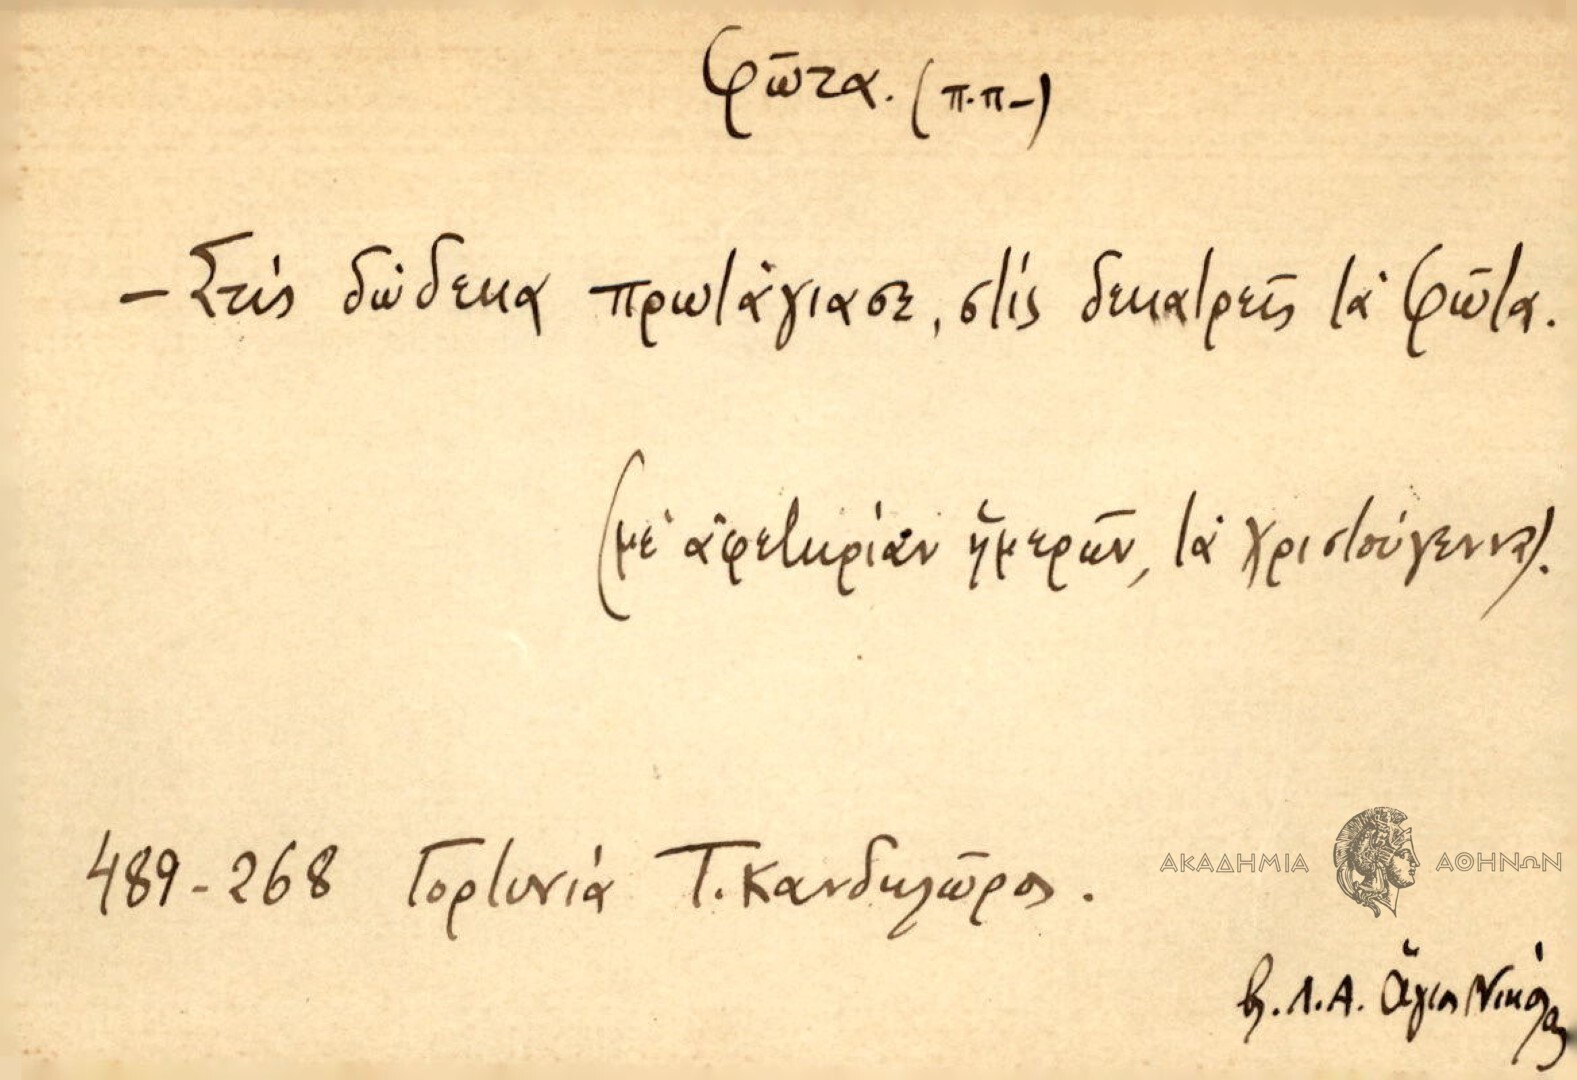 Φῶτα. (π.π-)
- Στὶς δώδεκα πρωτάγιασε, στὶς δεκατρεῖς τὰ Φῶτα.
(μὲ ἀφετηρίαν ἡμερῶν, τὰ Χριστούγεννα).
489-268 Γορτυνία Τ. Κανδηλῶρος.
ΑΚΑΔΗΜΙΑ ΑΘΗΝΩΝ
βλ. Λ.Α. Ἅγιος Νικόλαος